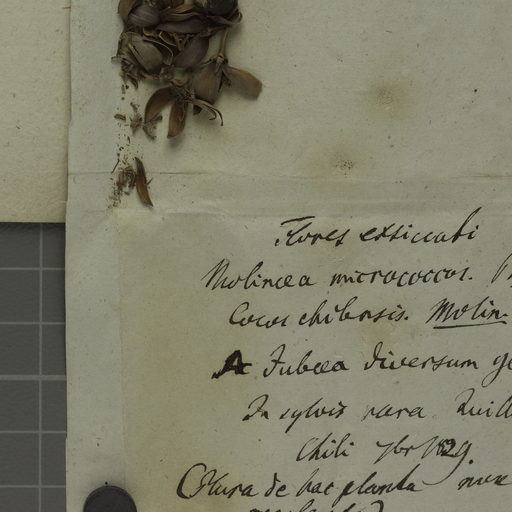 Flores exsiccati
Molinaea micrococos.
Cocos chilensis. Molin.
A Jubaea diversum ge
In sylvis rara Quill
Chili 7br 1829
Plura de hac planta